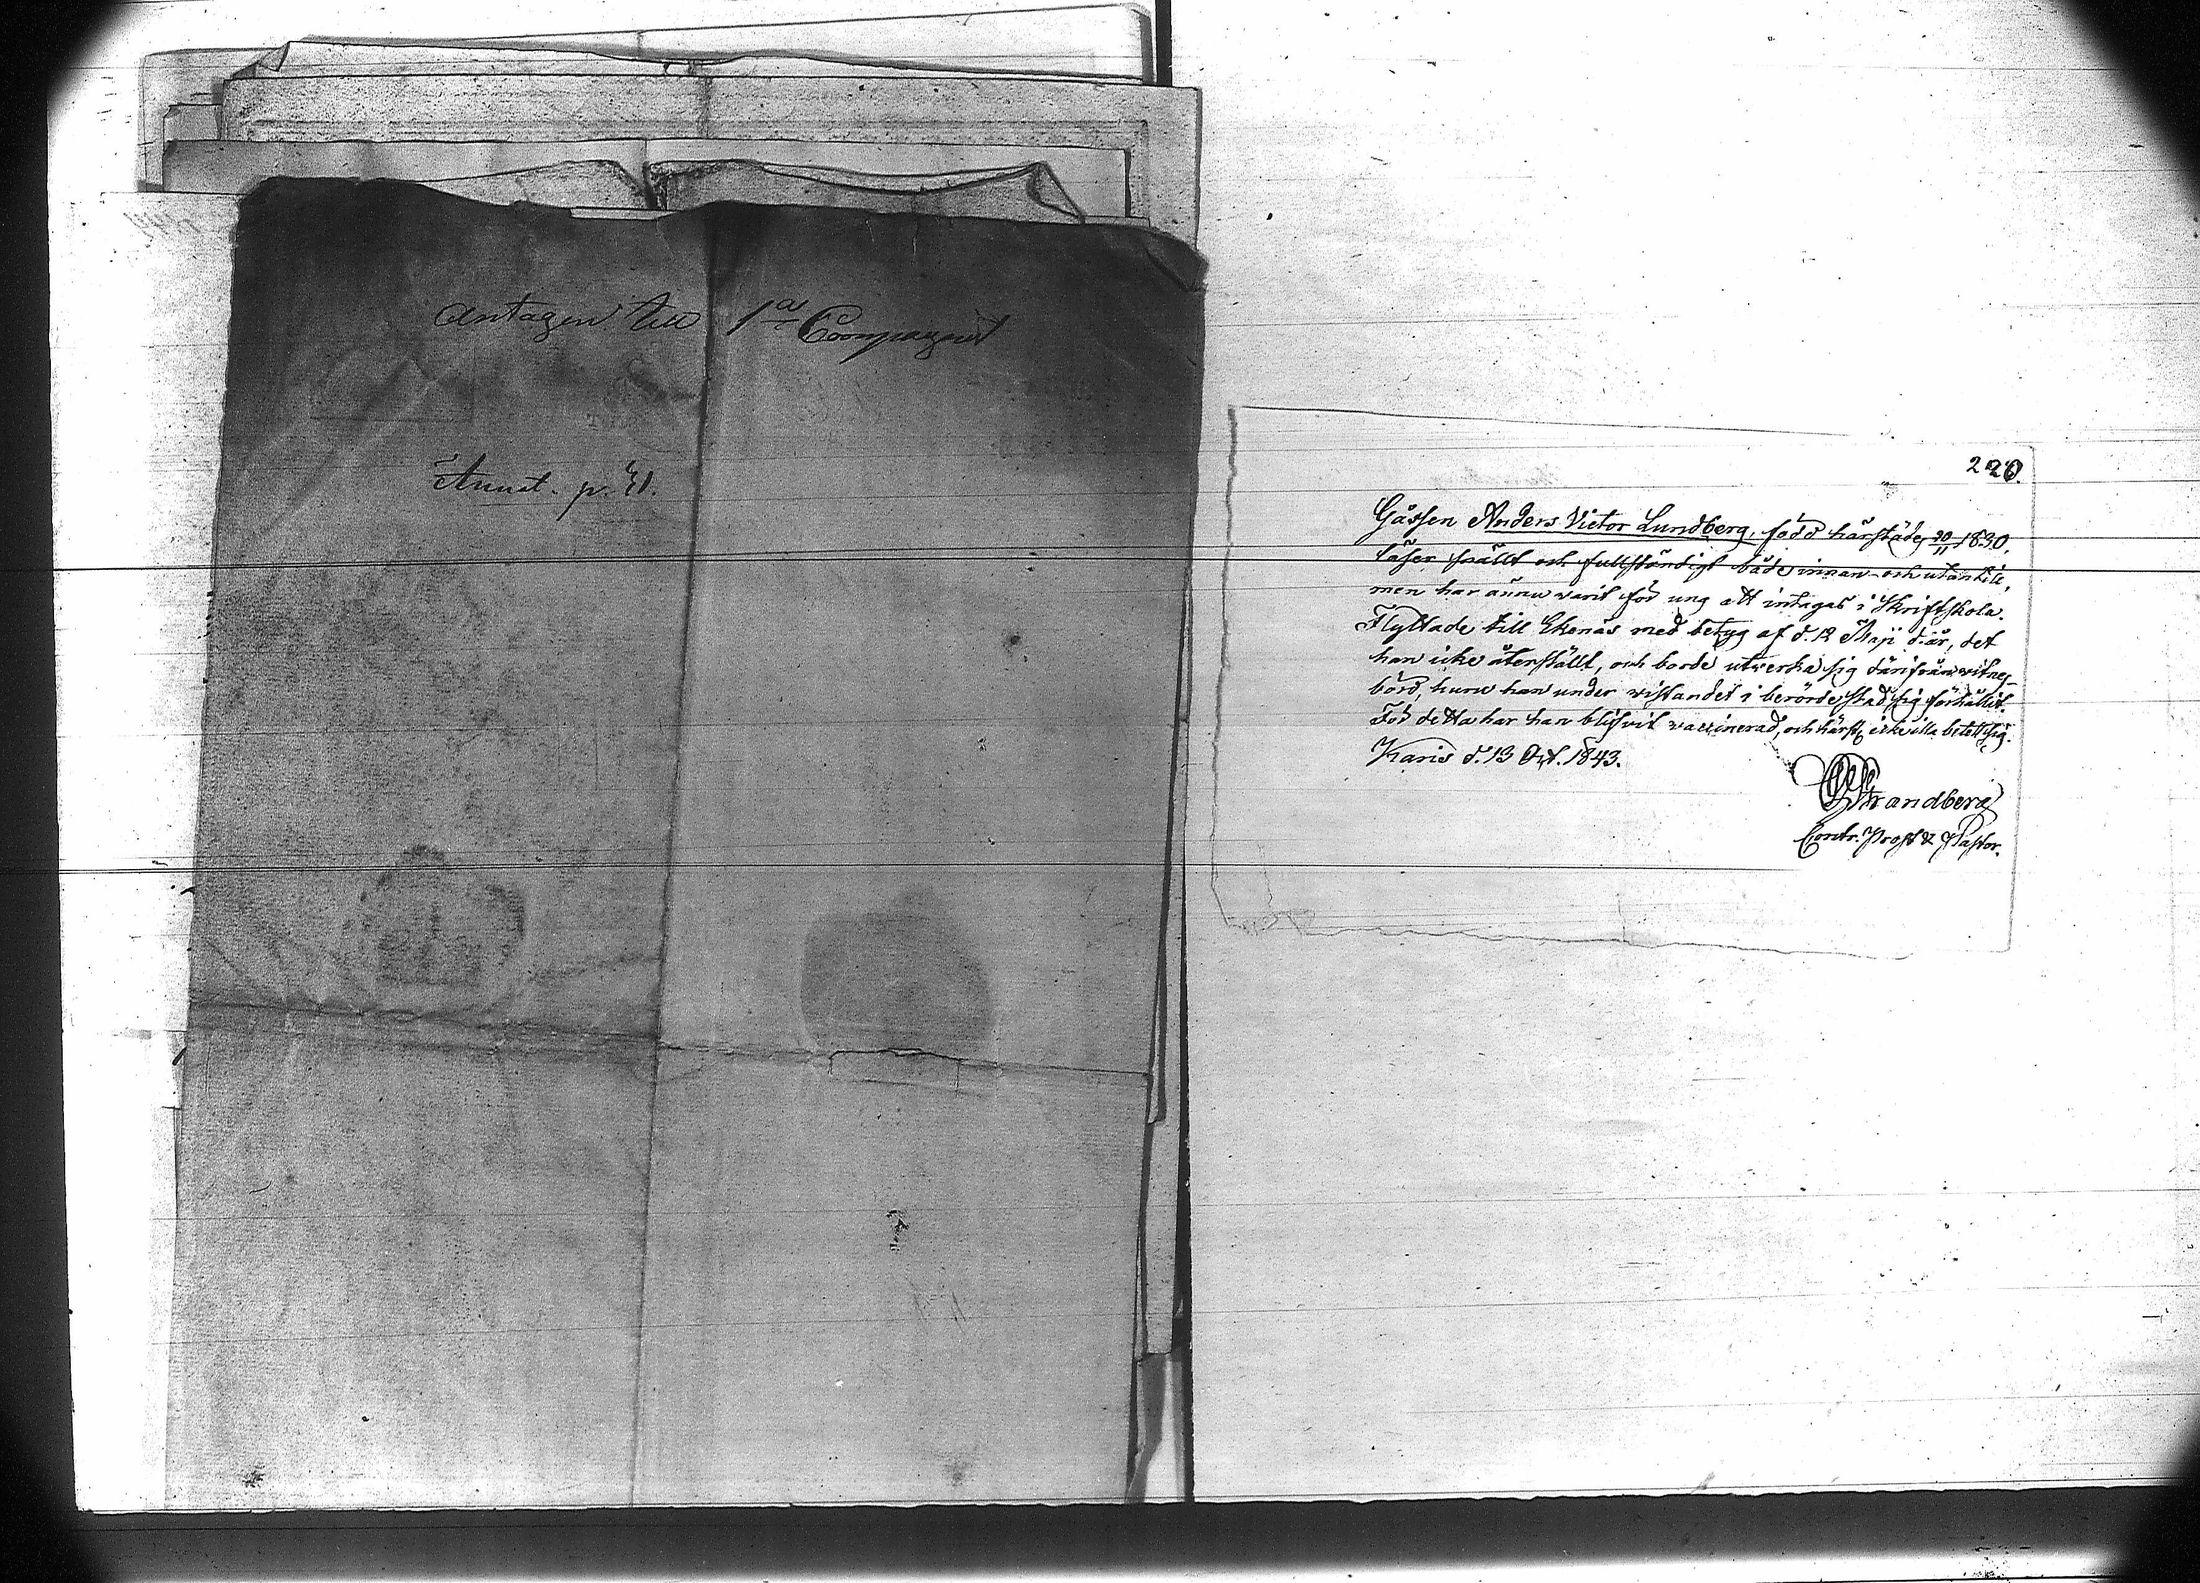 Antagen till 1a Compagniet
Annot. p. 41.
220.
Gåssen Anders Victor Lundberg, född härstädes 30/11 1830,
läser snällt och fullständigt både innan- och utantill,
men har ännu varit för ung att intagas i Skriftskola.
Flyttade till Ekenäs med betyg af d. 12 Maji d. år, det
han icke återställt, och borde utverka sig därifrån vitnes-
börd, huru han under vistandet i berörde stad sig förhållit.
För detta har han blifvit vaccinerad, och härst. icke illa betett sig.
Karis d. 13 Oct. 1843.
Strandberg
Contr. Prost & Pastor.